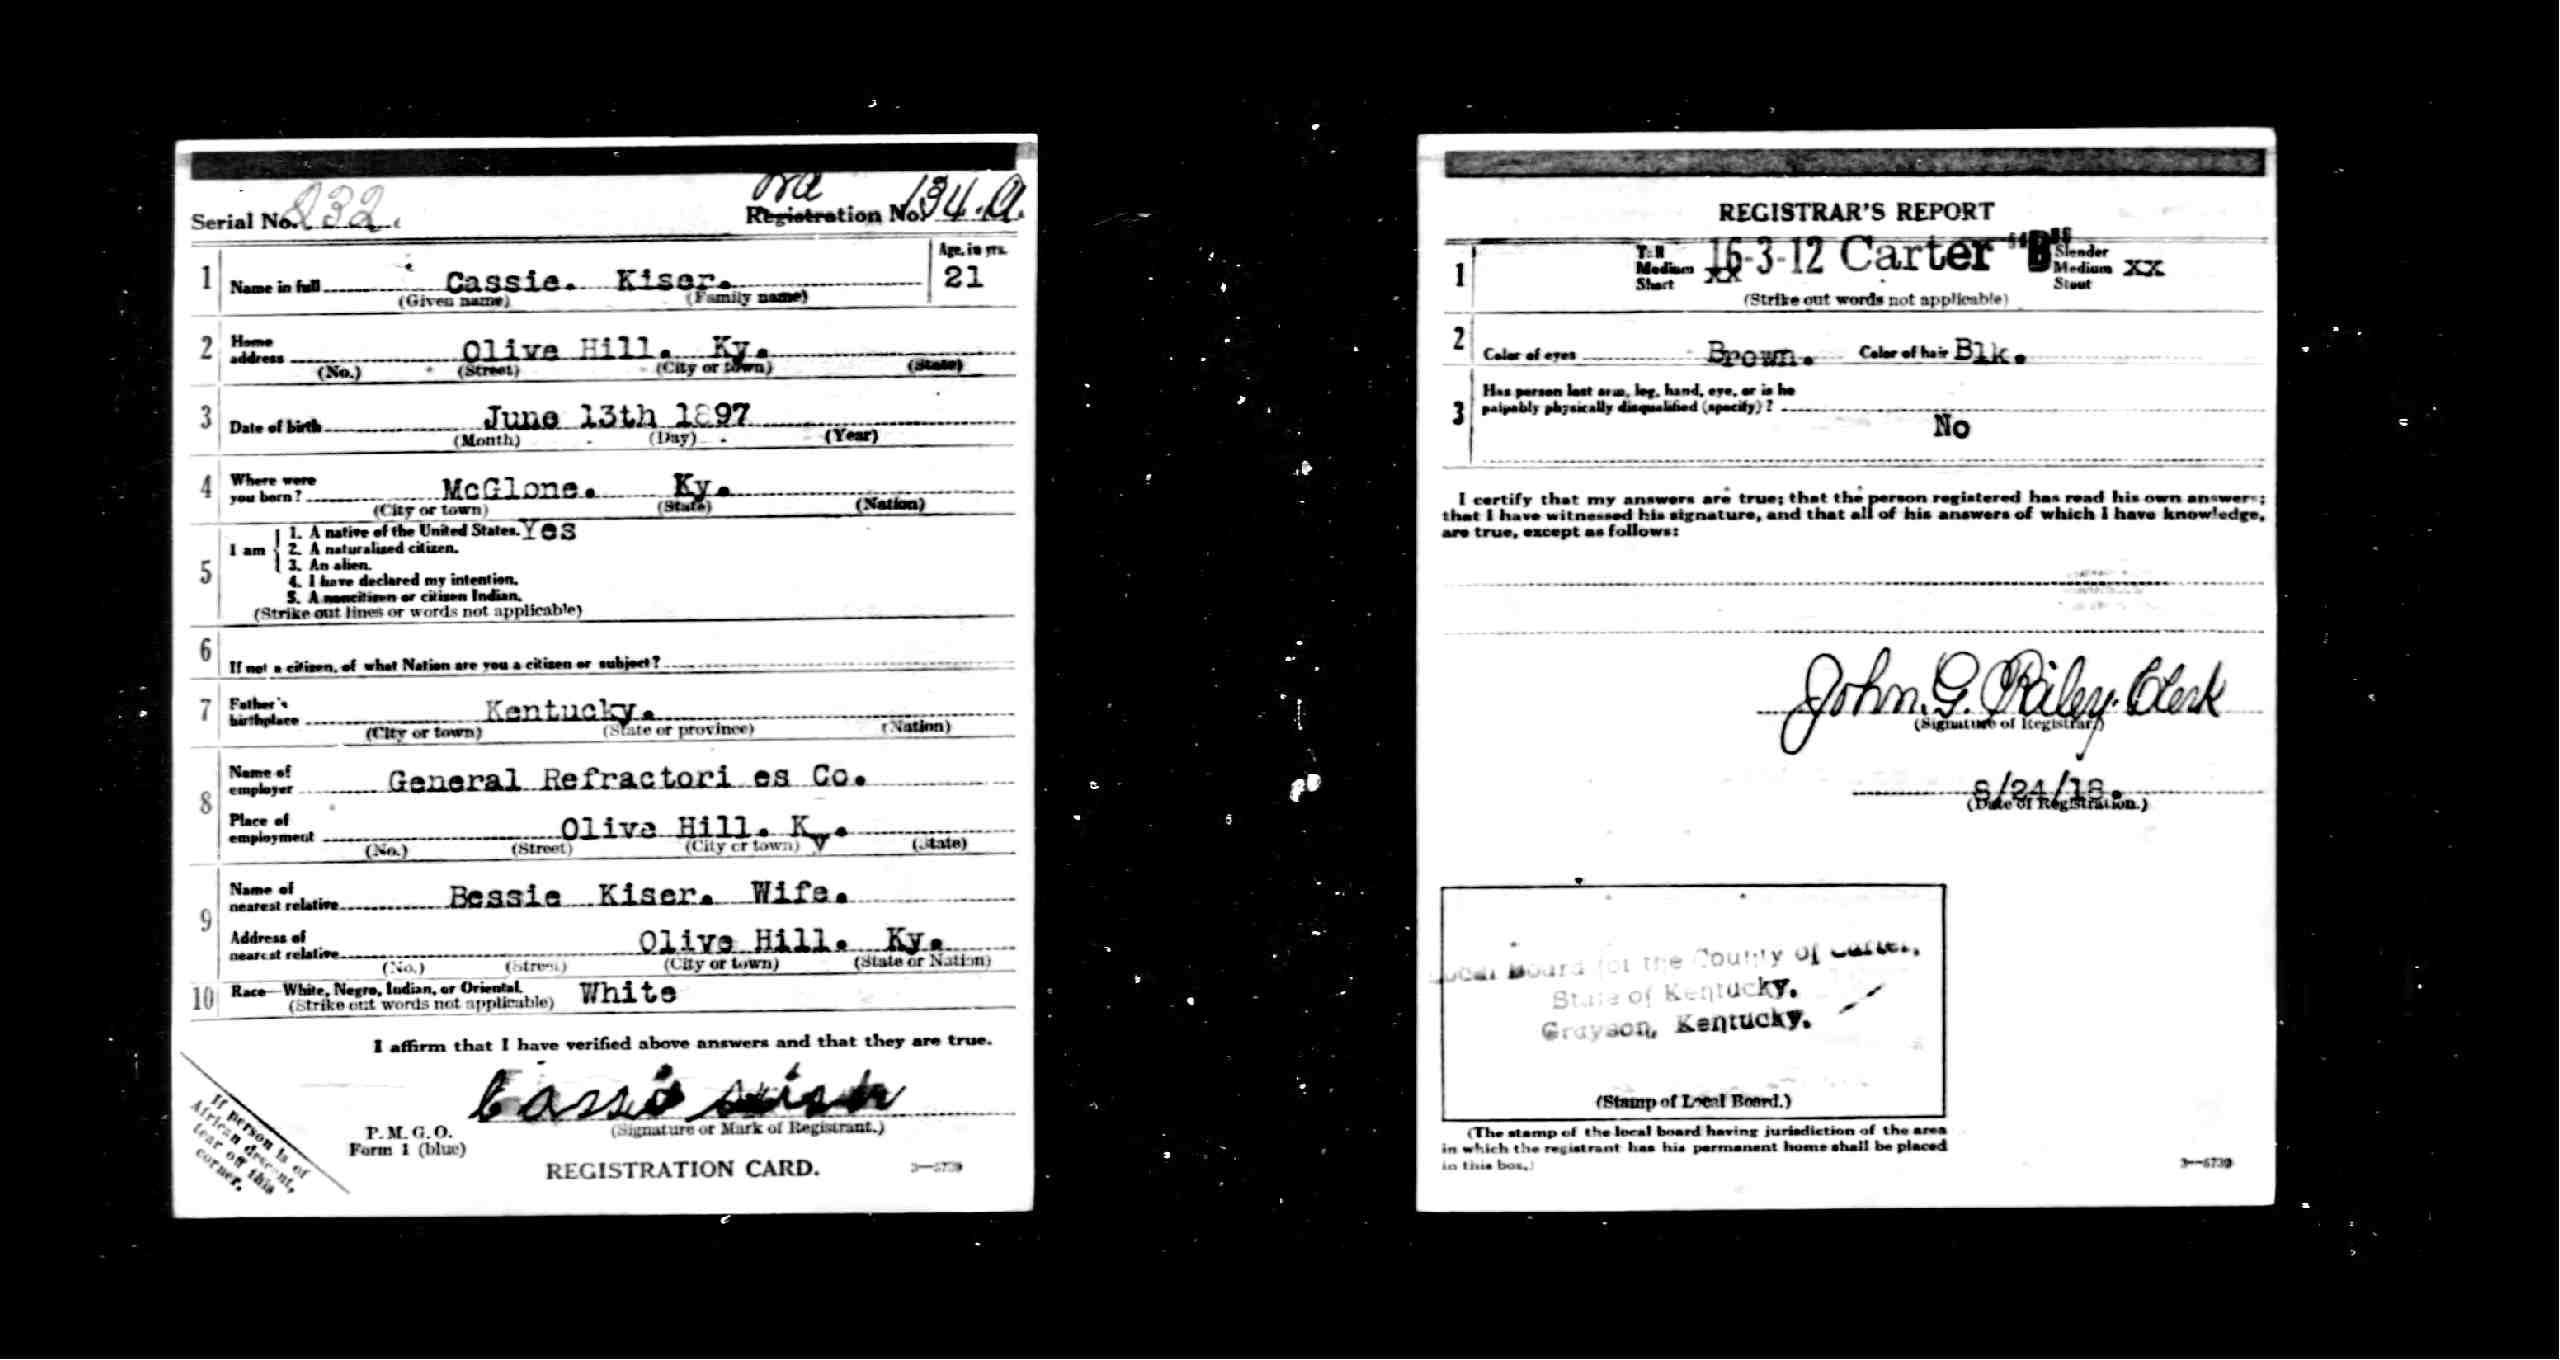 Serial No. 232. Registration No. 134.A.
1 Name in full Cassie. Kiser. Age, in yrs. 21
(Given name) (Family name)
2 Home address Olive Hill. Ky.
(No.) (Street) (City or town) (State)
3 Date of birth June 13th 1897
(Month) (Day) (Year)
4 Where were you born? McGlone. Ky.
(City or town) (State) (Nation)
5 I am
1. A native of the United States. Yes
2. A naturalized citizen.
3. An alien.
4. I have declared my intention.
5. A noncitizen or citizen Indian.
(Strike out lines or words not applicable)
6 If not a citizen, of what Nation are you a citizen or subject?
7 Father's birthplace Kentucky.
(City or town) (State or province) (Nation)
8 Name of employer General Refractori es Co.
Place of employment Olive Hill. Ky.
(No.) (Street) (City or town) (State)
9 Name of nearest relative Bessie Kiser. Wife.
Address of nearest relative Olive Hill. Ky.
(No.) (Street) (City or town) (State or Nation)
10 Race—White, Negro, Indian, or Oriental. White
(Strike out words not applicable)
I affirm that I have verified above answers and that they are true.
Cassie
(Signature or Mark of Registrant.)
P. M. G. O.
Form 1 (blue)
REGISTRATION CARD. 3—5739
If person is of
African descent,
tear off this
corner.
REGISTRAR'S REPORT
1 Tall 16-3-12 Carter "B" Slender
Medium xx Medium xx
Short Stout
(Strike out words not applicable)
2 Color of eyes Brown. Color of hair Blk.
3 Has person lost arm, leg, hand, eye, or is he
palpably physically disqualified (specify)?
No
I certify that my answers are true; that the person registered has read his own answers;
that I have witnessed his signature, and that all of his answers of which I have knowledge,
are true, except as follows:
John. G. Riley. Clerk
(Signature of Registrar)
8/24/18.
(Date of Registration.)
Local Board for the County of Carter,
State of Kentucky.
Grayson, Kentucky.
(Stamp of Local Board.)
(The stamp of the local board having jurisdiction of the area
in which the registrant has his permanent home shall be placed
in this box.)
3—5739